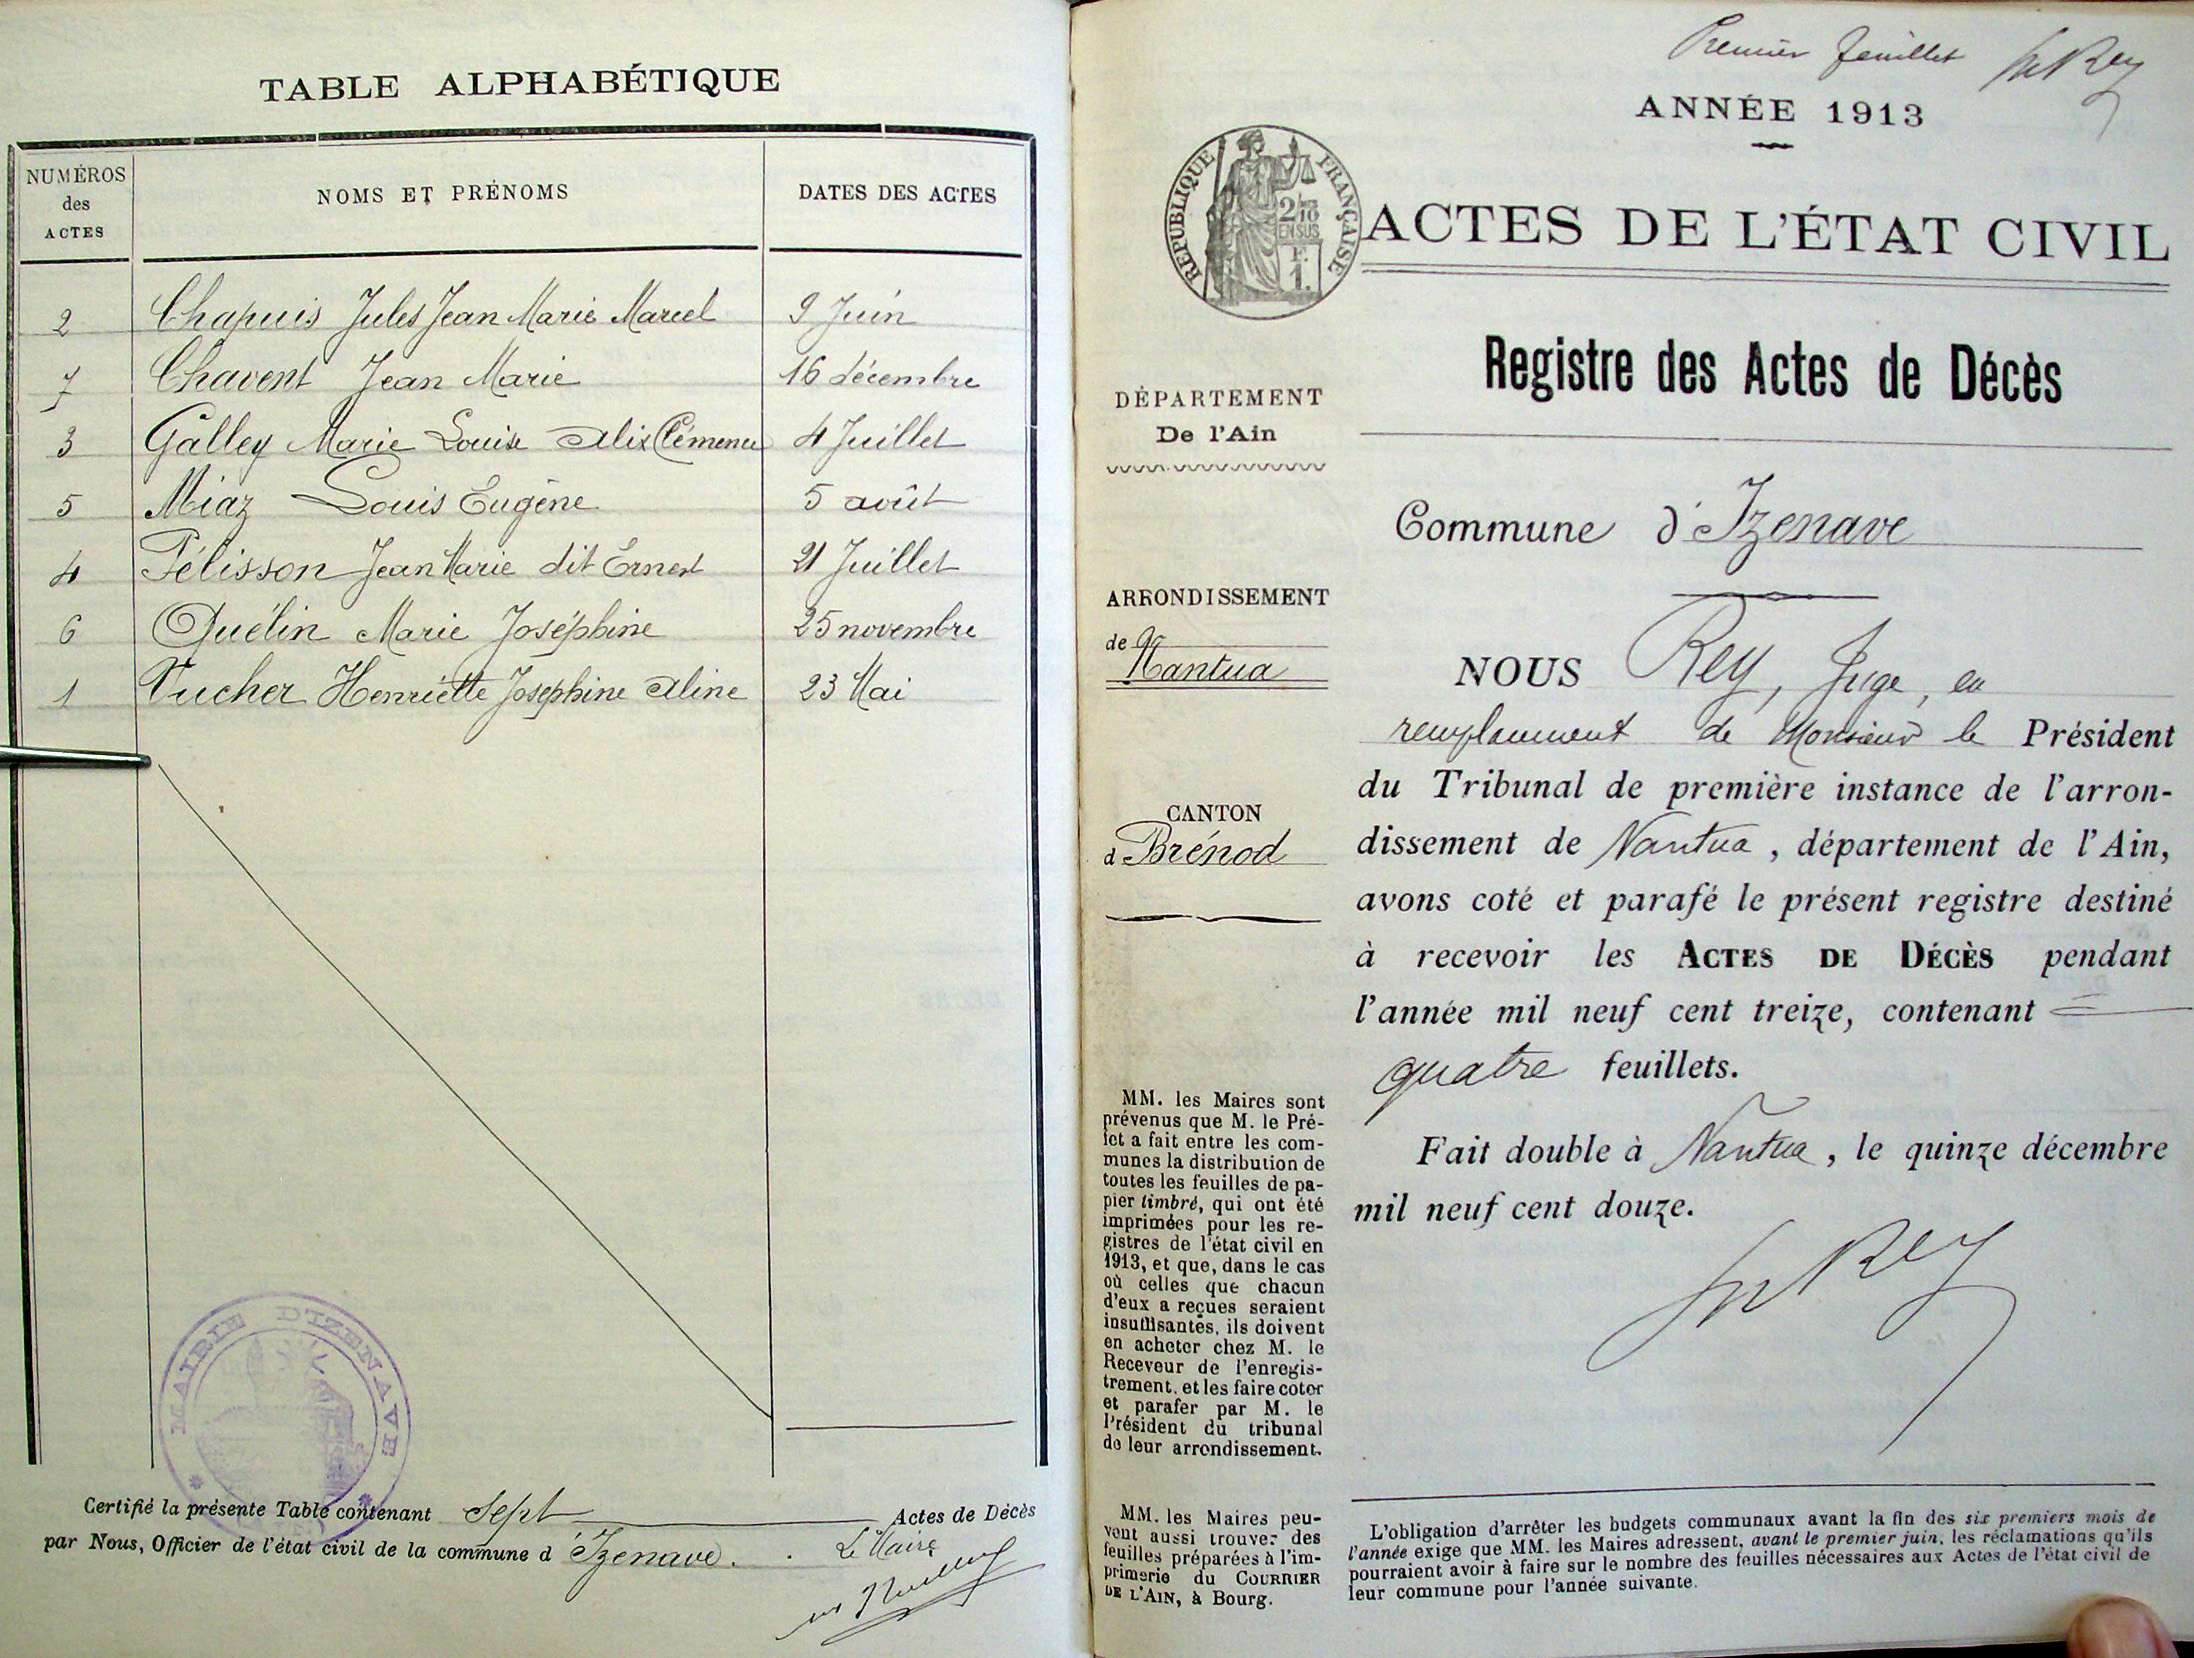 TABLE ALPHABÉTIQUE
NUMÉROS
des
ACTES
NOMS ET PRÉNOMS
DATES DES ACTES
2 Chapuis Jules Jean Marie Marcel 9 Juin
7 Chavent Jean Marie 16 décembre
3 Galley Marie Louise Alix Clémence 4 Juillet
5 Miaz Louis Eugène 5 août
4 Pélisson Jean Marie dit Ernest 21 Juillet
6 Quélin Marie Joséphine 25 novembre
1 Vucher Henriette Josephine Aline 23 Mai
MAIRIE D'IZENAVE
Certifié la présente Table contenant Sept Actes de Décès
par Nous, Officier de l'état civil de la commune d'Izenave.
Le Maire
Premier feuillet Rey
ANNÉE 1913
RÉPUBLIQUE FRANÇAISE
2/10
EN SUS
1.
ACTES DE L'ÉTAT CIVIL
Registre des Actes de Décès
DÉPARTEMENT
De l'Ain
Commune d'Izenave
ARRONDISSEMENT
de
Nantua
CANTON
d Brénod
NOUS Rey, Juge, en
remplacement de Monsieur le Président
du Tribunal de première instance de l'arron-
dissement de Nantua, département de l'Ain,
avons coté et parafé le présent registre destiné
à recevoir les ACTES DE DÉCÈS pendant
l'année mil neuf cent treize, contenant
quatre feuillets.
Fait double à Nantua, le quinze décembre
mil neuf cent douze.
Rey
MM. les Maires sont
prévenus que M. le Pré-
fet a fait entre les com-
munes la distribution de
toutes les feuilles de pa-
pier timbré, qui ont été
imprimées pour les re-
gistres de l'état civil en
1913, et que, dans le cas
où celles que chacun
d'eux a reçues seraient
insuffisantes, ils doivent
en acheter chez M. le
Receveur de l'enregis-
trement, et les faire coter
et parafer par M. le
Président du tribunal
de leur arrondissement.
MM. les Maires peu-
vent aussi trouver des
feuilles préparées à l'im-
primerie du COURRIER
DE L'AIN, à Bourg.
L'obligation d'arrêter les budgets communaux avant la fin des six premiers mois de
l'année exige que MM. les Maires adressent, avant le premier juin, les réclamations qu'ils
pourraient avoir à faire sur le nombre des feuilles nécessaires aux Actes de l'état civil de
leur commune pour l'année suivante.